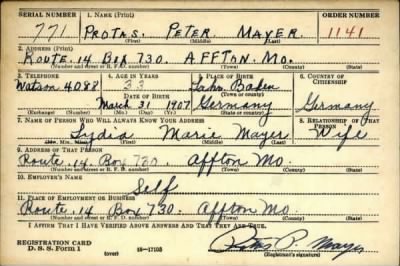 SERIAL NUMBER 1. NAME (Print) ORDER NUMBER
771 PROTAS. PETER. MAYER. 1141
(First) (Middle) (Last)
2. ADDRESS (Print)
ROUTE. 14 BOX 730. AFFTON. MO.
(Number and street or R. F. D. number) (Town) (County) (State)
3. TELEPHONE 4. AGE IN YEARS 5. PLACE OF BIRTH 6. COUNTRY OF CITIZENSHIP
Watson 4088 33 Baden
DATE OF BIRTH
March 31 1907 Germany Germany
(Exchange) (Number) (Mo.) (Day) (Yr.) (State or country)
7. NAME OF PERSON WHO WILL ALWAYS KNOW YOUR ADDRESS 8. RELATIONSHIP OF THAT PERSON
Lydia Marie Mayer Wife
(Mr., Mrs., Miss) (First) (Middle) (Last)
9. ADDRESS OF THAT PERSON
Route. 14. Box 730. Affton Mo.
(Number and street or R. F. D. number) (Town) (County) (State)
10. EMPLOYER'S NAME
Self
11. PLACE OF EMPLOYMENT OR BUSINESS
Route. 14. Box 730. Affton Mo.
(Number and street or R. F. D. number) (Town) (County) (State)
I AFFIRM THAT I HAVE VERIFIED ABOVE ANSWERS AND THAT THEY ARE TRUE.
REGISTRATION CARD
D. S. S. Form 1 (over) 16—17105 P. Mayer
(Registrant's signature)